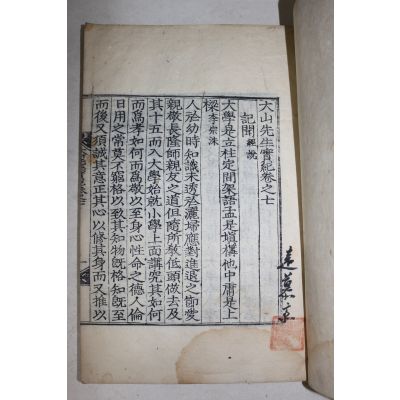 大山先生實紀卷之七
記聞 經說
大學是立柱定間架語孟是塡構他中庸是上
樑 李宗洙
人於幼時知識未透於灑掃應對進退之節愛
親敬長隆師親友之道但隨所敎低頭做去及
其十五而入大學始就小學上面講究其如何
而爲孝如何而爲敬以至身心性命之德人倫
日用之常莫不窮格以致其知物旣格知旣至
而後又須誠其意正其心以修其身而又推以